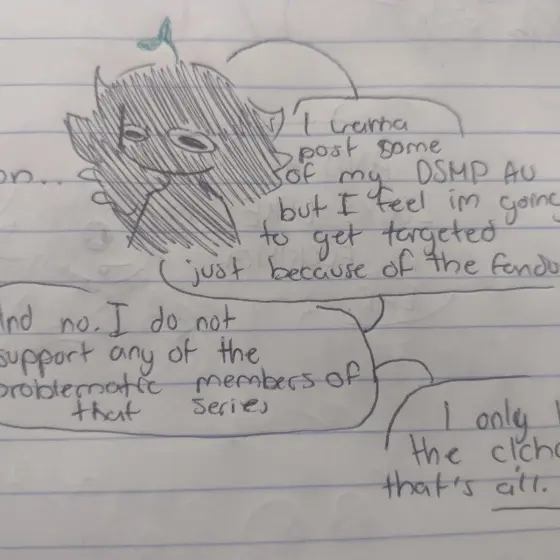 on..
I wanna
post some
of my DSMP AU
but I feel im going
to get targeted
just because of the fando
And no. I do not
support any of the
problematic members of
that series
I only l
the
that's all.